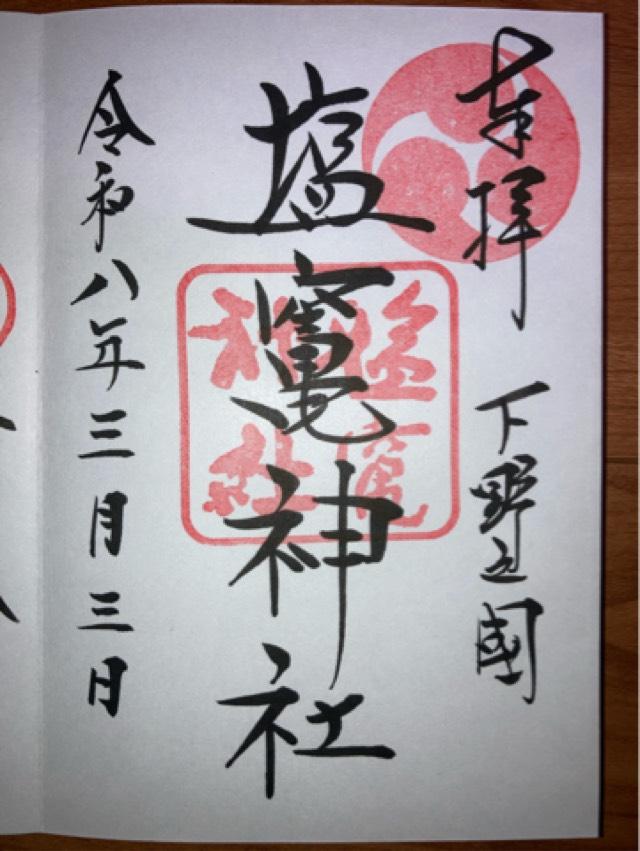 奉拝
下野之國
塩竈神社
塩竈神社
令和八年三月三日